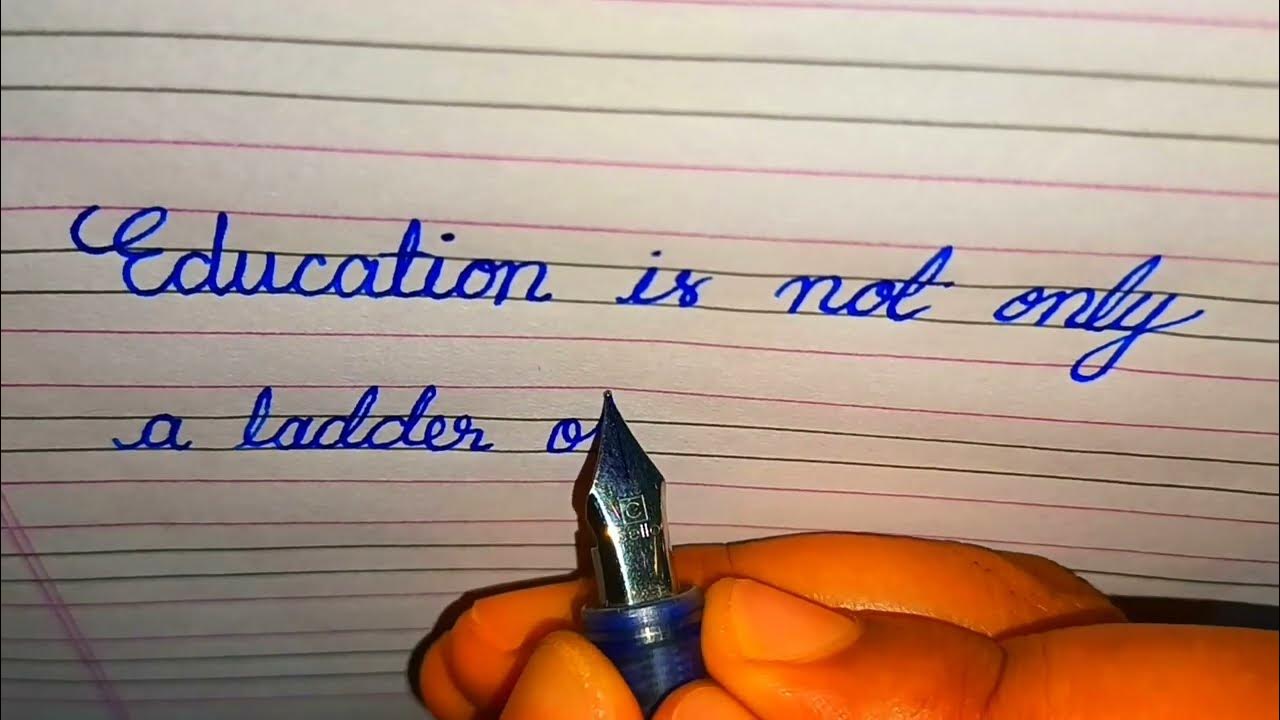 Education is not only
a ladder o